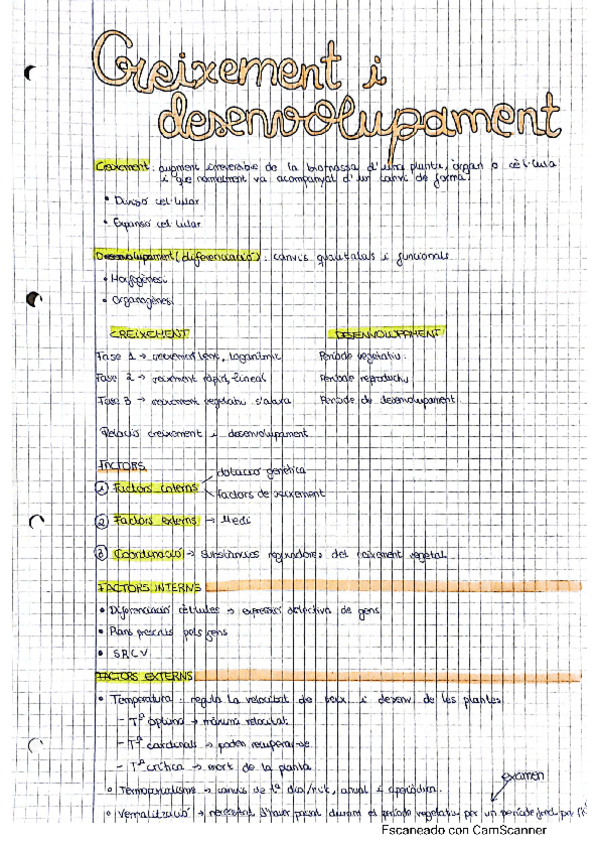 Creixement i
desenvolupament
Creixement: augment irreversible de la biomassa d'una planta, òrgan o cèl·lula
i que normalment va acompanyat d'un canvi de forma.
• Divisió cel·lular
• Expansió cel·lular
Desenvolupament (diferenciació): canvis qualitatius i funcionals.
• Morfogènesi
• Organogènesi
CREIXEMENT DESENVOLUPAMENT
Fase 1 → creixement lent, logarítmic Període vegetatiu.
Fase 2 → creixement ràpid, lineal Període reproductiu
Fase 3 → creixement vegetatiu s'atura Període de desenvolupament
Relació creixement i desenvolupament
FACTORS
dotació genètica
① Factors interns
factors de creixement
② Factors externs → Medi
③ Coordinació → substàncies reguladores del creixement vegetal
FACTORS INTERNS
• Diferenciació cèl·lules → expressió selectiva de gens
• Plans prescrits pels gens
• SRCV
FACTORS EXTERNS
• Temperatura: regula la velocitat de creix. i desenv. de les plantes
- Tª òptima → màxima velocitat
- Tª cardinals → poden recuperar-se
- Tª crítica → mort de la planta
examen
• Termoperiodisme → canvis de tª dia/nit, anual i aperiòdica.
• Vernalització → necessitat d'haver passat durant el període vegetatiu per un període fred per
Escaneado con CamScanner